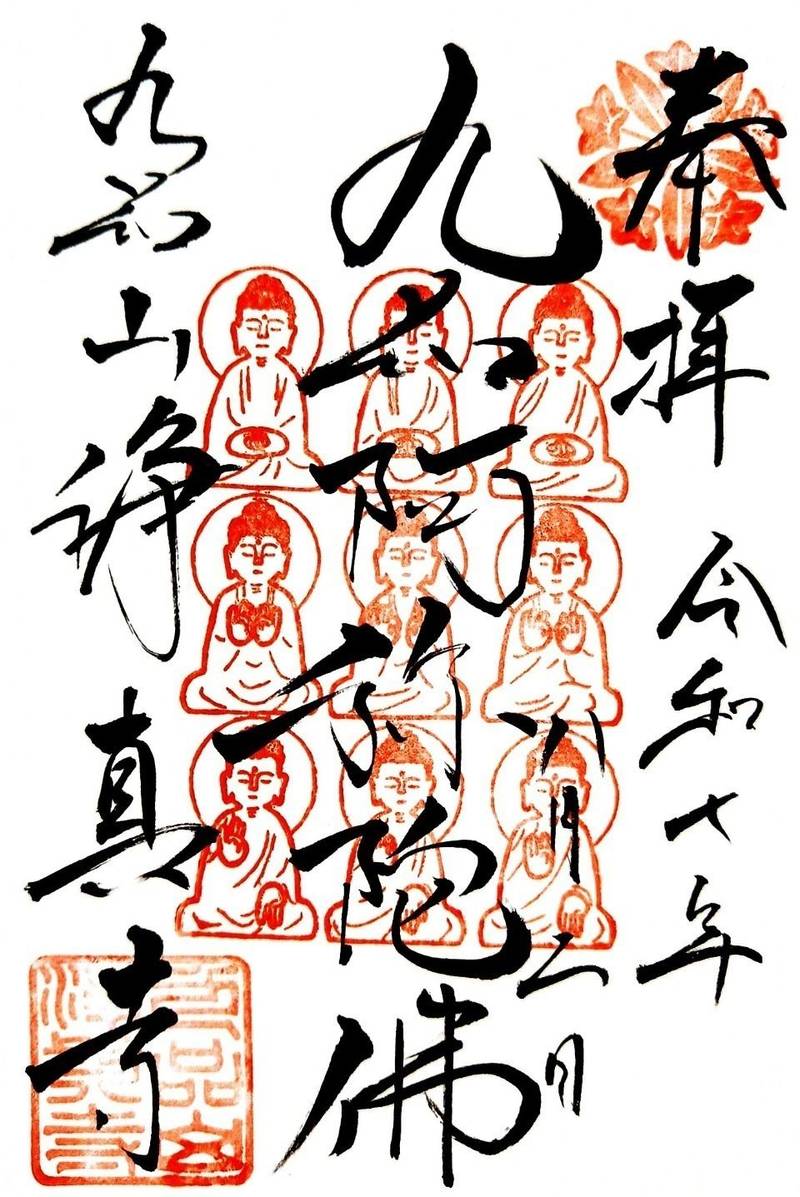 奉拝 令和七年
八月二日
九品阿弥陀佛
九品山 浄真寺